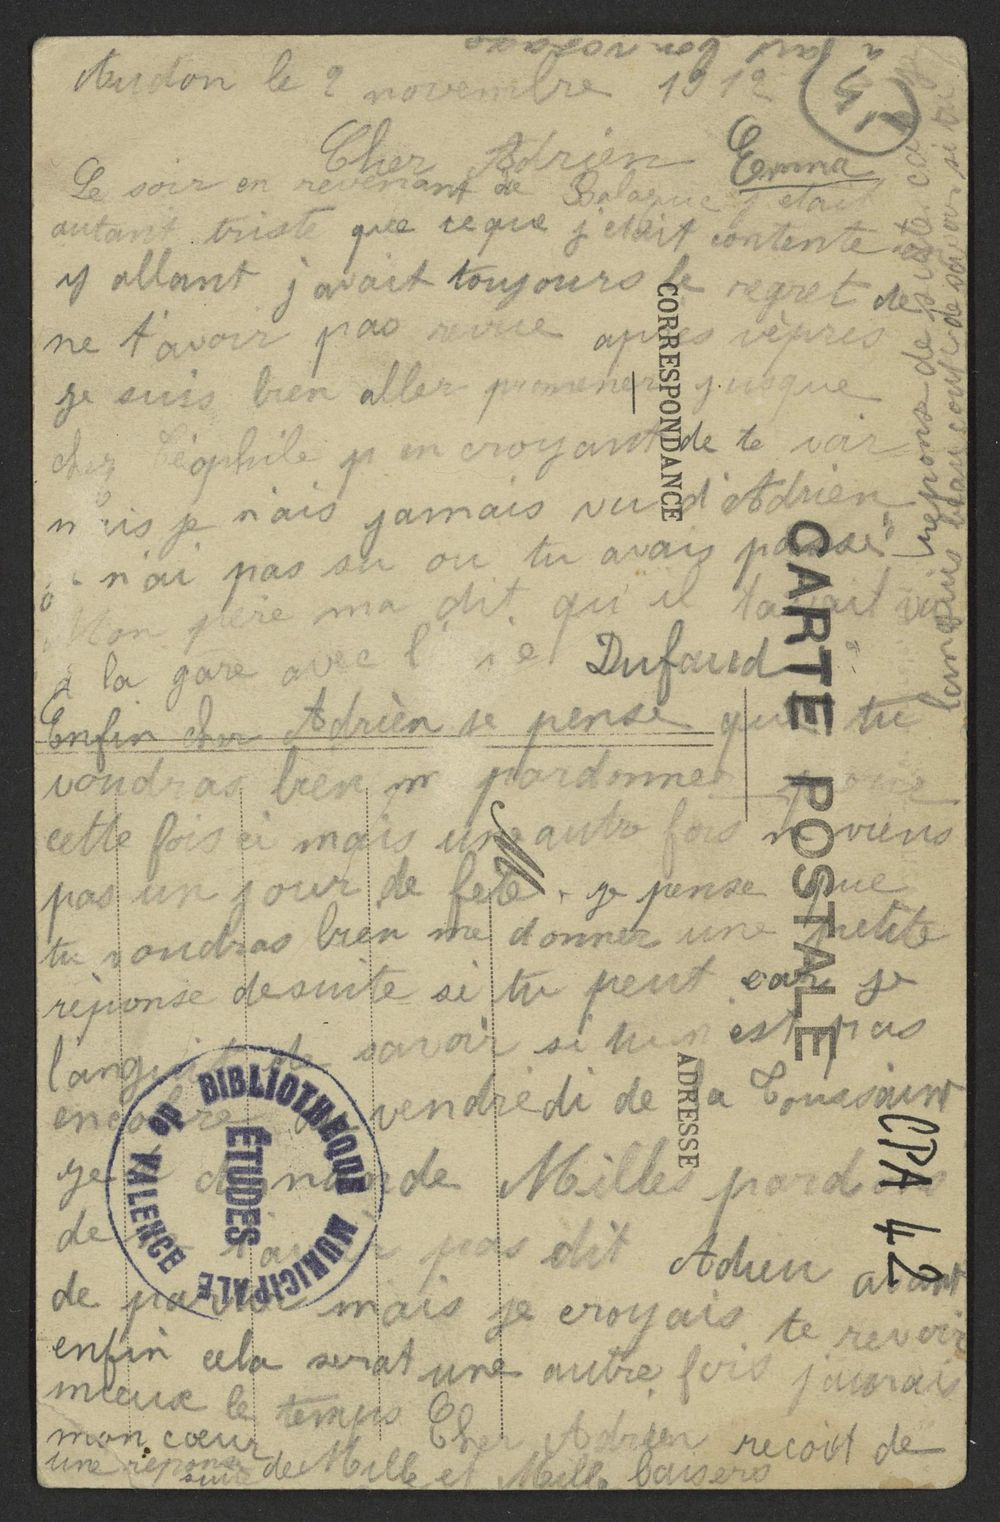 Audon le 2 novembre 1912
Cher Adrien Emma
Le soir en revenant de Balazuc j etait
autant triste que ceque j etait contente
y allant j avait toujours le regret de
ne t'avoir pas revue apres vèpres
je suis bien aller promener jusque
chez Téophile en croyant de te voir
mais je n'ais jamais vu d'Adrien
n'ai pas su ou tu avais passé
Mon père ma dit qu'il tavait vu
a la gare avec Dufaud
Enfin cher Adrièn je pense que tu
voudras bien m pardonner pour
cette fois ci mais une autre fois ne viens
pas un jour de fete. je pense que
tu voudras bien me donner une petite
réponse desuite si tu peut car je
languit de savoir si tu n est pas
encolere vendredi de la Toussaint
je demande Milles pardons
de pas dit Adieu avant
de partir mais je croyais te revoir
enfin cela serat une autre fois j aurais
mieux le temps Cher Adrien recoit de
mon cœur de Mille et Mille baisers
une réponse
suite
languis beaucoup de savoir si tu
reponse de suite car je
a fait bon voyage
CARTE POSTALE
CORRESPONDANCE
ADRESSE
M
CPA 42
BIBLIOTHEQUE MUNICIPALE
ÉTUDES
de VALENCE